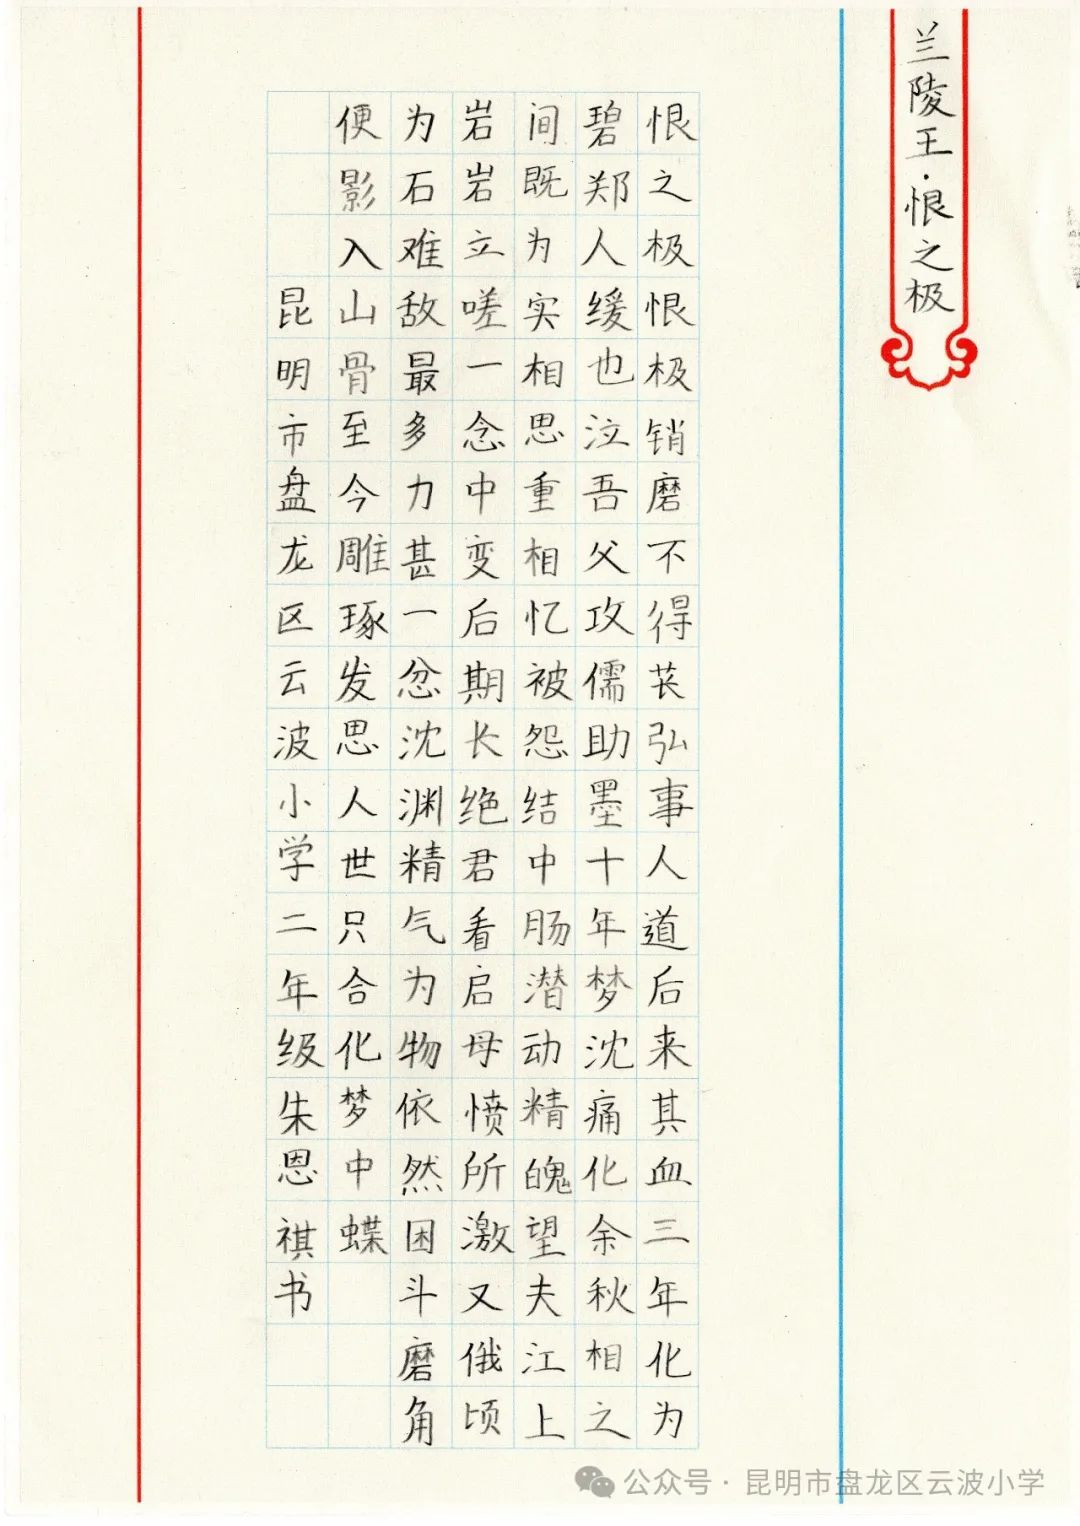 兰陵王·恨之极
恨之极恨极销磨不得苌弘事人道后来其血三年化为
碧郑人缓也泣吾父攻儒助墨十年梦沈痛化余秋相之
间既为实相思重相忆被怨结中肠潜动精魄望夫江上
岩岩立嗟一念中变后期长绝君看启母愤所激又俄顷
为石难敌最多力甚一忿沈渊精气为物依然困斗磨角
便影入山骨至今雕琢发思人世只合化梦中蝶
昆明市盘龙区云波小学二年级朱恩祺书
公众号·昆明市盘龙区云波小学